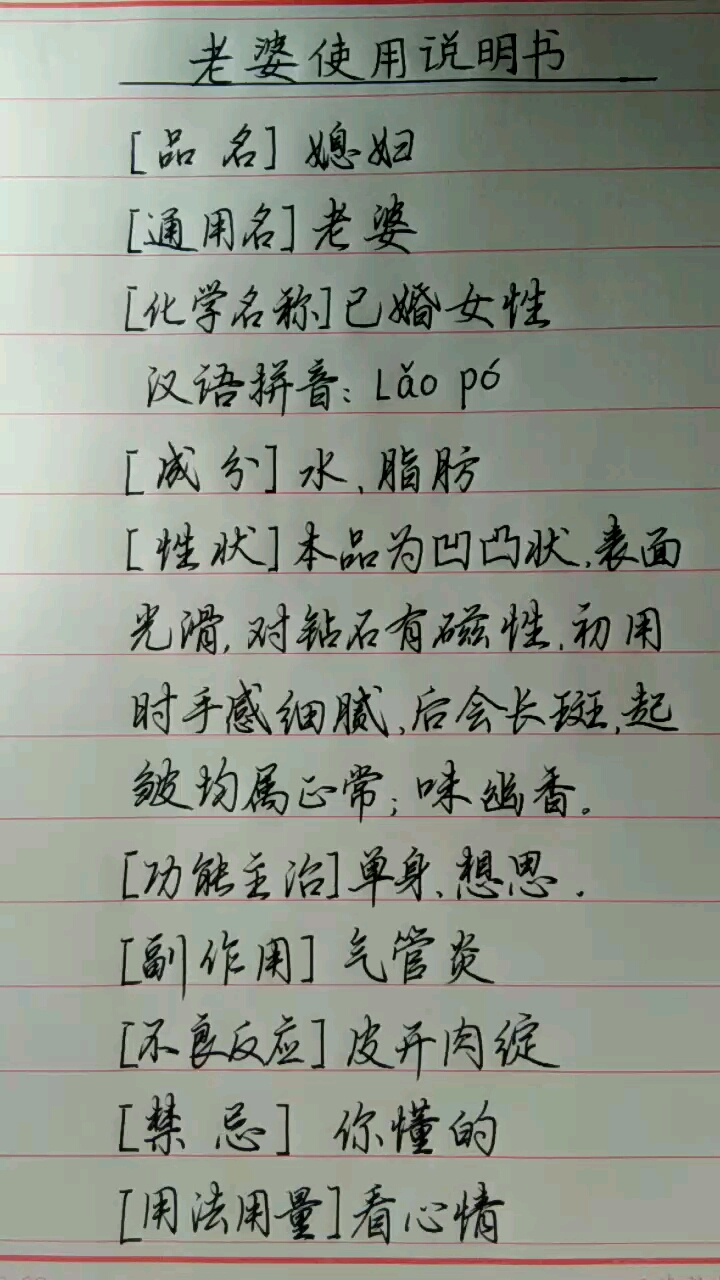 老婆使用说明书
[品 名] 媳妇
[通用名] 老婆
[化学名称] 已婚女性
汉语拼音: Lǎo pó
[成 分] 水、脂肪
[性 状] 本品为凹凸状,表面
光滑,对钻石有磁性,初用
时手感细腻,后会长斑,起
皱均属正常;味幽香。
[功能主治] 单身、想思.
[副作用] 气管炎
[不良反应] 皮开肉绽
[禁 忌] 你懂的
[用法用量] 看心情